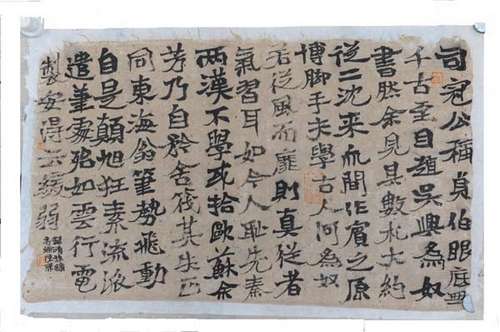 司寇公稱貞伯眼底無
千古至目趙吳興為奴
書然余見其數札大約
從二沈来而間作賓之原
博脚手夫學古人何為奴
若從風而靡則真從者
氣習耳如今人恥先秦
兩漢不學或拾歐蘇余
芳乃自於舍筏其失也
同東海翁筆勢飛動
自是顛旭狂素流派
遣筆處殆如雲行電
製安得云緩弱